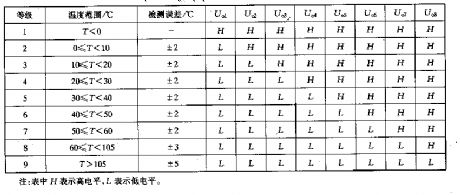 等级 温度范围/℃ 检测误差/℃ Uo1 Uo2 Uo3 Uo4 Uo5 Uo6 Uo7 Uo8
1 T<0 － H H H H H H H H
2 0≤T<10 ±2 L H H H H H H H
3 10≤T<20 ±2 L L H H H H H H
4 20≤T<30 ±2 L L L H H H H H
5 30≤T<40 ±2 L L L L H H H H
6 40≤T<50 ±2 L L L L L H H H
7 50≤T<60 ±2 L L L L L L H H
8 60≤T<105 ±3 L L L L L L L H
9 T>105 ±5 L L L L L L L L
注:表中H表示高电平,L表示低电平。